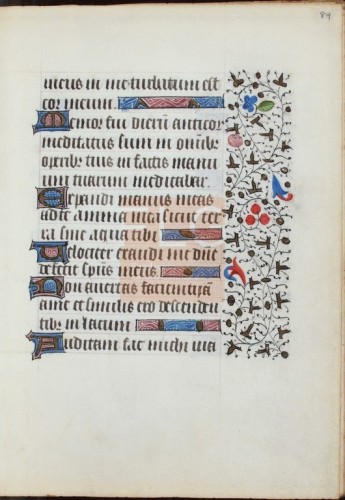 89
meus in me turbatum est
cor meum.
Memor fui dierū antiquor
meditatus sum in omībꝫ
operibꝫ tuis in factis manu
um tuarum meditabar.
Expandi manus meas
ad te anima mea sicut ter
ra sine aqua tibi
Velociter exaudi me dñe
defecit spūs meus.
Non auertas faciem tuā
a me et similis ero descenden
tibꝫ in lacum
Auditam fac michi ma